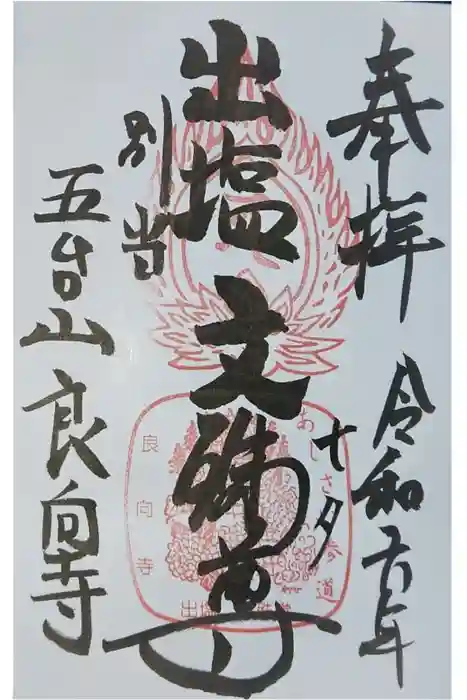 奉拝
令和 年
七夕
出塩文殊尊
別当
五台山良向寺
あじさ 参道
良向寺